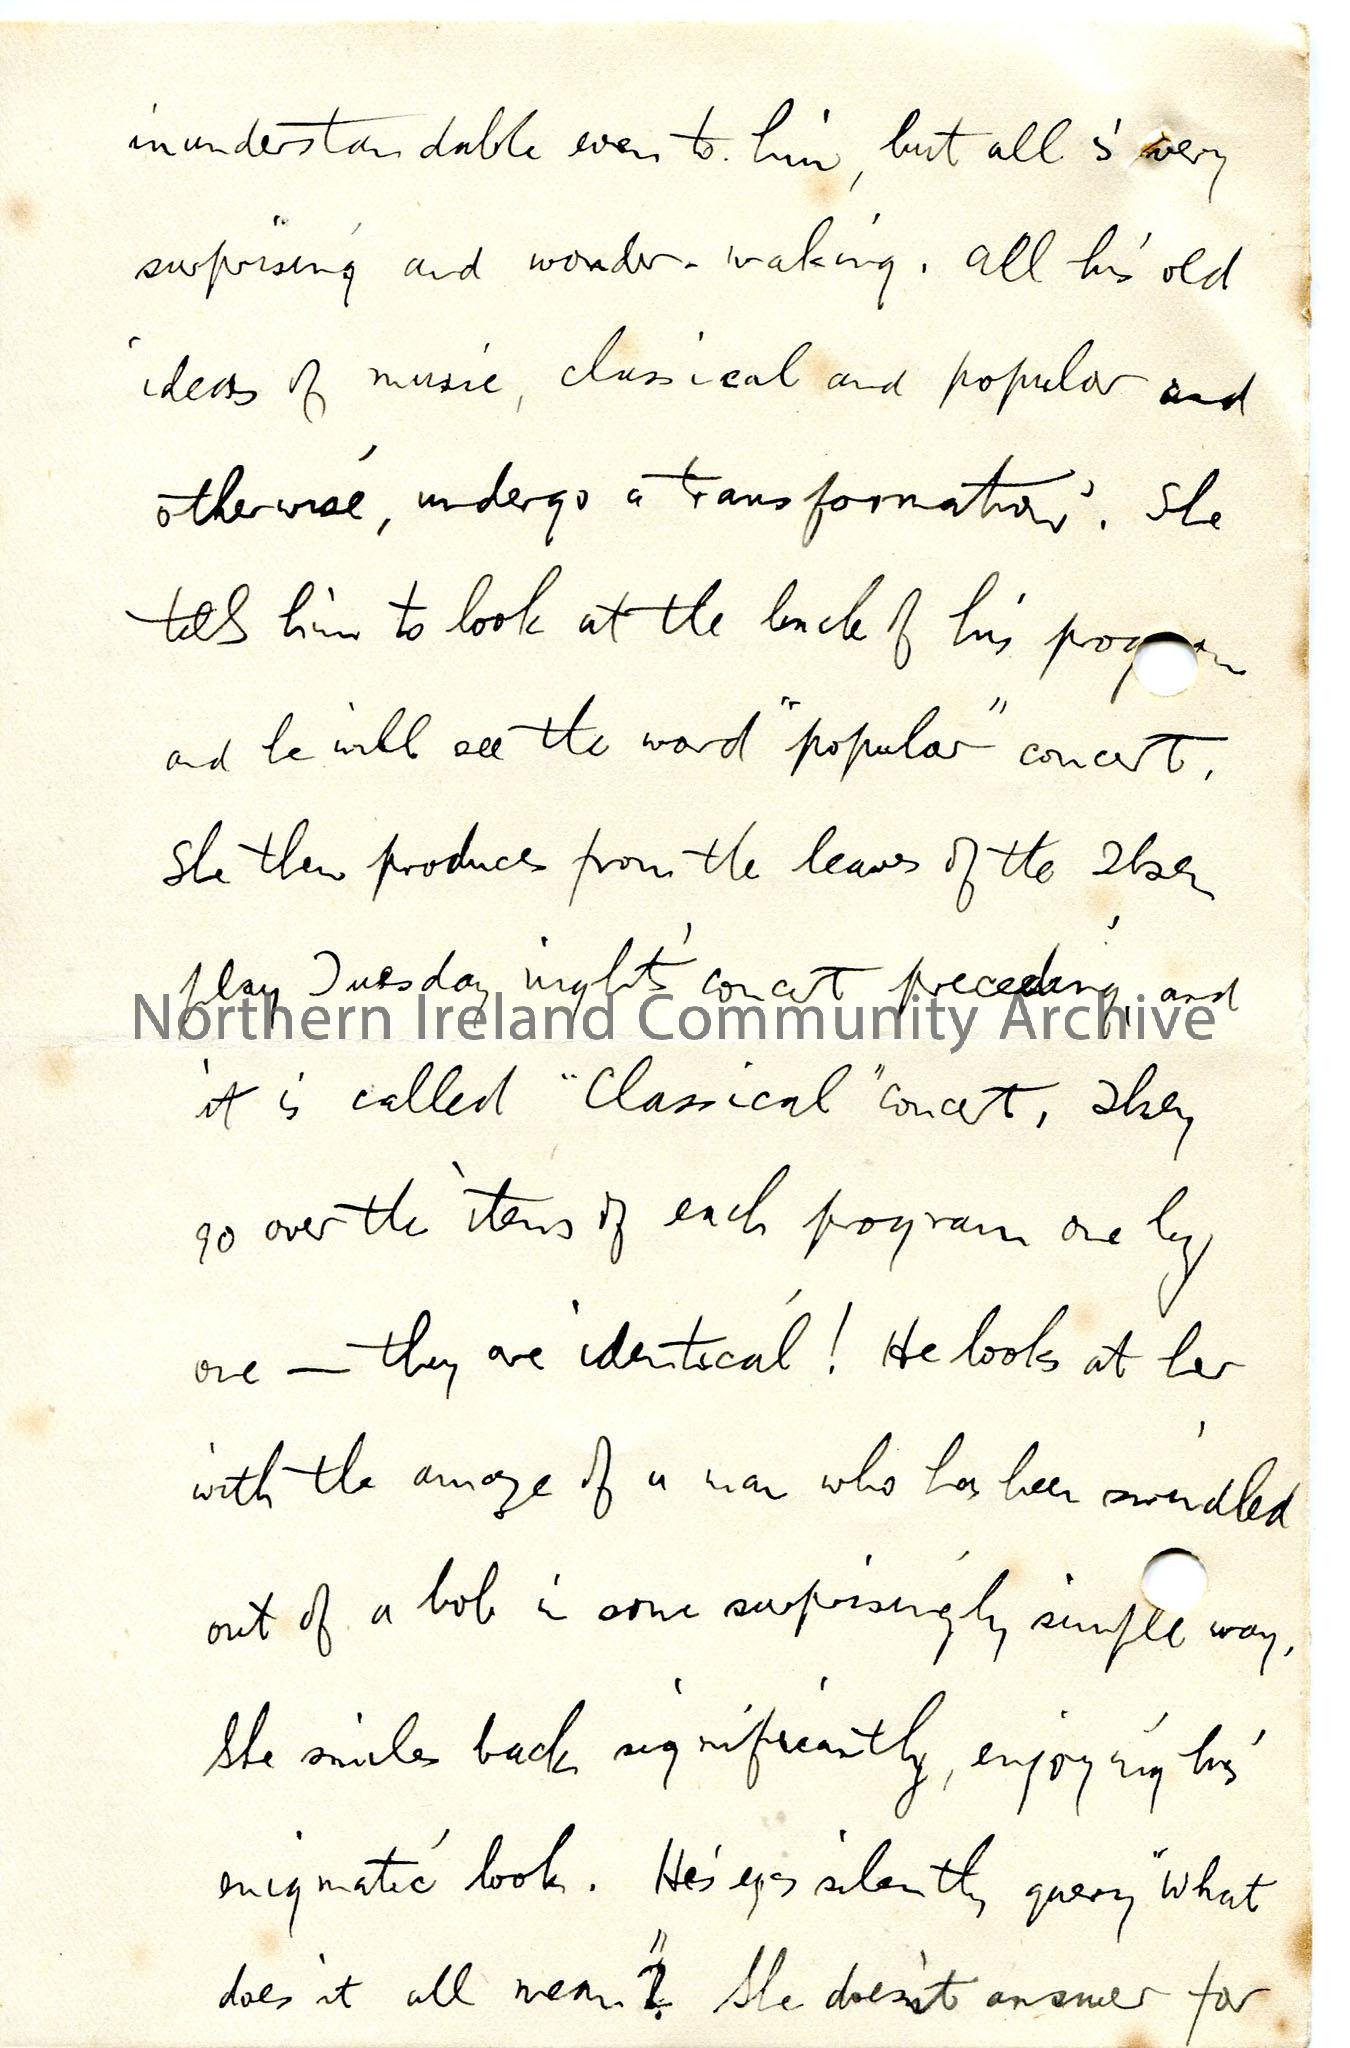 inunderstandable even to him, but all is very
surprising and wonder-waking. All his old
ideas of music, classical and popular and
otherwise, undergo a transformation. She
tells him to look at the back of his program
and he will see the word "popular" concert.
She then produces from the leaves of the Ibsen
play Tuesday night's concert preceding, and
Northern Ireland Community Archive
it is called "Classical" concert. They
go over the items of each program one by
one — they are identical! He looks at her
with the amaze of a man who has been swindled
out of a bob in some surprisingly simple way.
She smiles back significantly, enjoying his
enigmatic look. His eyes silently query "What
does it all mean"? She doesn't answer for